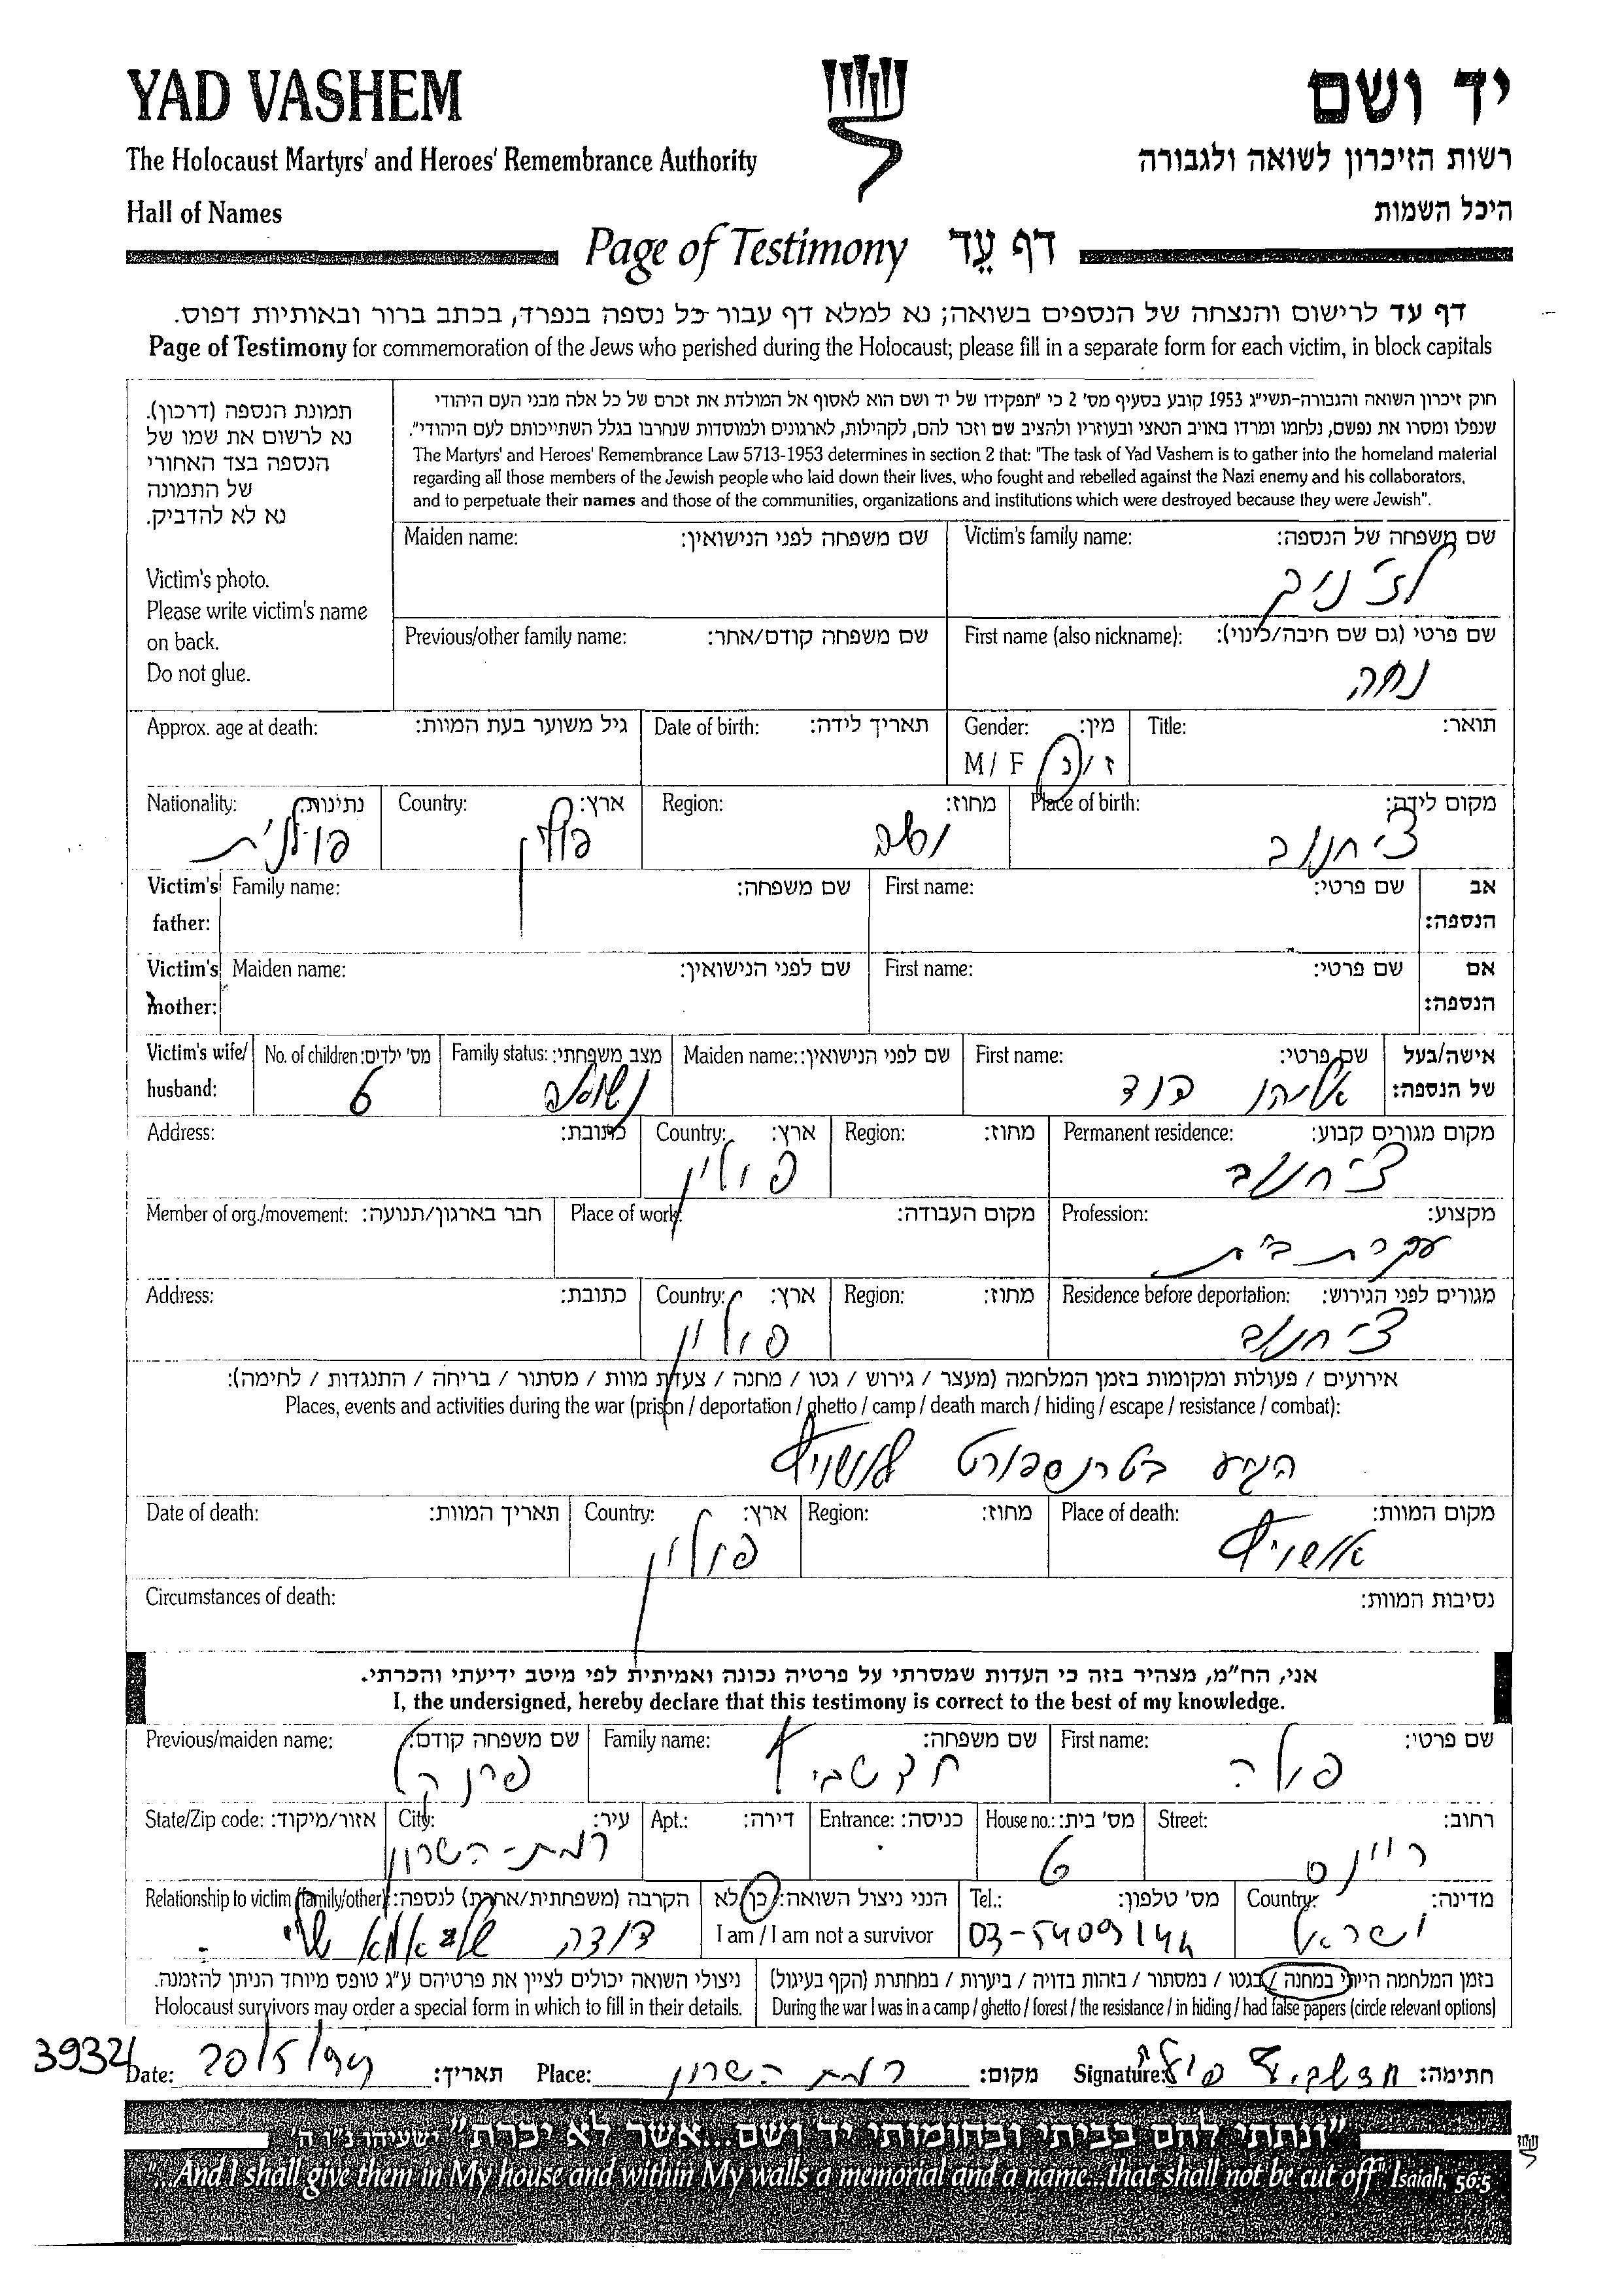 YAD VASHEM
יד ושם
The Holocaust Martyrs' and Heroes' Remembrance Authority
רשות הזיכרון לשואה ולגבורה
Hall of Names
היכל השמות
Page of Testimony דף עֵד
דף עד לרישום והנצחה של הנספים בשואה; נא למלא דף עבור כל נספה בנפרד, בכתב ברור ובאותיות דפוס.
Page of Testimony for commemoration of the Jews who perished during the Holocaust; please fill in a separate form for each victim, in block capitals
תמונת הנספה (דרכון).
נא לרשום את שמו של
הנספה בצד האחורי
של התמונה
נא לא להדביק.
Victim's photo.
Please write victim's name
on back.
Do not glue.
חוק זיכרון השואה והגבורה-תשי"ג 1953 קובע בסעיף מס' 2 כי "תפקידו של יד ושם הוא לאסוף אל המולדת את זכרם של כל אלה מבני העם היהודי
שנפלו ומסרו את נפשם, נלחמו ומרדו באויב הנאצי ובעוזריו ולהציב שם וזכר להם, לקהילות, לארגונים ולמוסדות שנחרבו בגלל השתייכותם לעם היהודי".
The Martyrs' and Heroes' Remembrance Law 5713-1953 determines in section 2 that: "The task of Yad Vashem is to gather into the homeland material
regarding all those members of the Jewish people who laid down their lives, who fought and rebelled against the Nazi enemy and his collaborators,
and to perpetuate their names and those of the communities, organizations and institutions which were destroyed because they were Jewish".
שם משפחה של הנספה: Victim's family name: שם משפחה לפני הנישואין: Maiden name:
שם פרטי (גם שם חיבה/כינוי): First name (also nickname): שם משפחה קודם/אחר: Previous/other family name:
נחה
תואר: Title: מין: Gender: תאריך לידה: Date of birth: גיל משוער בעת המוות: Approx. age at death:
ז / נ M / F
מקום לידה: Place of birth: מחוז: Region: ארץ: Country: נתינות: Nationality:
צ'יחנוב פולין פולנית
אב הנספה: שם פרטי: First name: שם משפחה: Family name: Victim's father:
אם הנספה: שם פרטי: First name: שם לפני הנישואין: Maiden name: Victim's mother:
אישה/בעל של הנספה: שם פרטי: First name: שם לפני הנישואין: Maiden name: מצב משפחתי: Family status: מס' ילדים: No. of children: Victim's wife/ husband:
אליהו דוד נשואה 6
מקום מגורים קבוע: Permanent residence: מחוז: Region: ארץ: Country: כתובת: Address:
צ'יחנוב פולין
מקצוע: Profession: מקום העבודה: Place of work: חבר בארגון/תנועה: Member of org./movement:
עקרת בית
מגורים לפני הגירוש: Residence before deportation: מחוז: Region: ארץ: Country: כתובת: Address:
צ'יחנוב פולין
אירועים / פעולות ומקומות בזמן המלחמה (מעצר / גירוש / גטו / מחנה / צעדת מוות / מסתור / בריחה / התנגדות / לחימה):
Places, events and activities during the war (prison / deportation / ghetto / camp / death march / hiding / escape / resistance / combat):
הגיע בטרנספורט לאושויץ
מקום המוות: Place of death: מחוז: Region: ארץ: Country: תאריך המוות: Date of death:
אושויץ פולין
נסיבות המוות: Circumstances of death:
אני, הח"מ, מצהיר בזה כי העדות שמסרתי על פרטיה נכונה ואמיתית לפי מיטב ידיעתי והכרתי.
I, the undersigned, hereby declare that this testimony is correct to the best of my knowledge.
שם פרטי: First name: שם משפחה: Family name: שם משפחה קודם: Previous/maiden name:
פולה פרנקל
רחוב: Street: מס' בית: House no.: כניסה: Entrance: דירה: Apt.: עיר: City: אזור/מיקוד: State/Zip code:
ריינס 6 רמת-השרון
מדינה: Country: מס' טלפון: Tel.: הנני ניצול השואה: כן/לא I am / I am not a survivor הקרבה (משפחתית/אחרת) לנספה: Relationship to victim (family/other):
ישראל 03-5409144 דודה של אמא שלי
בזמן המלחמה הייתי במחנה / בגטו / במסתור / בזהות בדויה / ביערות / במחתרת (הקף בעיגול)
During the war I was in a camp / ghetto / forest / the resistance / in hiding / had false papers (circle relevant options)
ניצולי השואה יכולים לציין את פרטיהם ע"ג טופס מיוחד הניתן להזמנה.
Holocaust survivors may order a special form in which to fill in their details.
חתימה: Signature: פולה מקום: רמת השרון Place: תאריך: 20/5/99 Date:
3932
"ונתתי להם בביתי ובחומותי יד ושם...אשר לא יכרת" ישעיהו נ"ו ה'
"...And I shall give them in My house and within My walls a memorial and a name...that shall not be cut off" Isaiah, 56:5